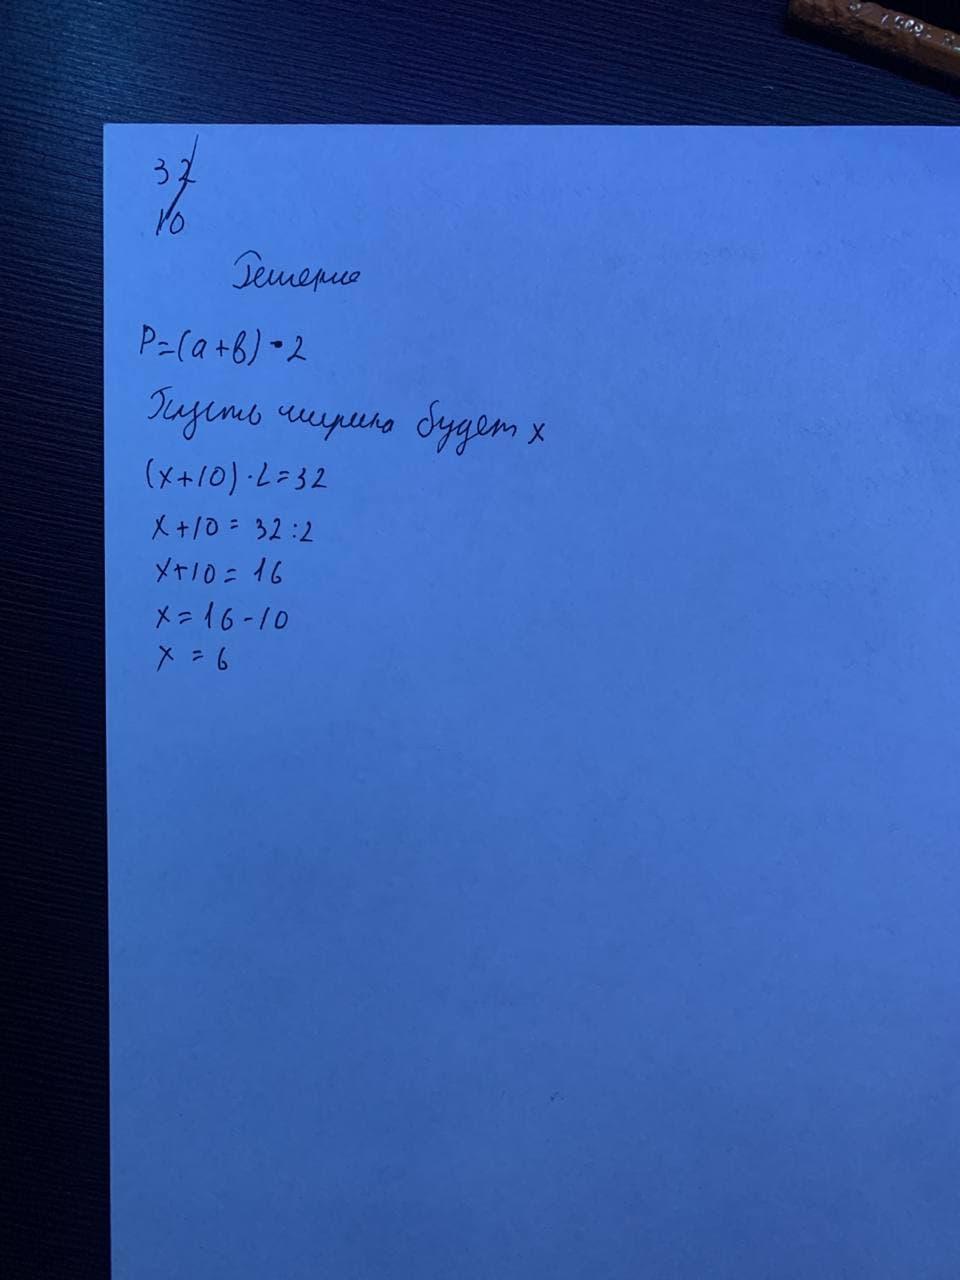 32
10
Решение
P=(a+b)·2
Пусть ширина будет x
(x+10)·2=32
x+10=32:2
x+10=16
x=16-10
x=6